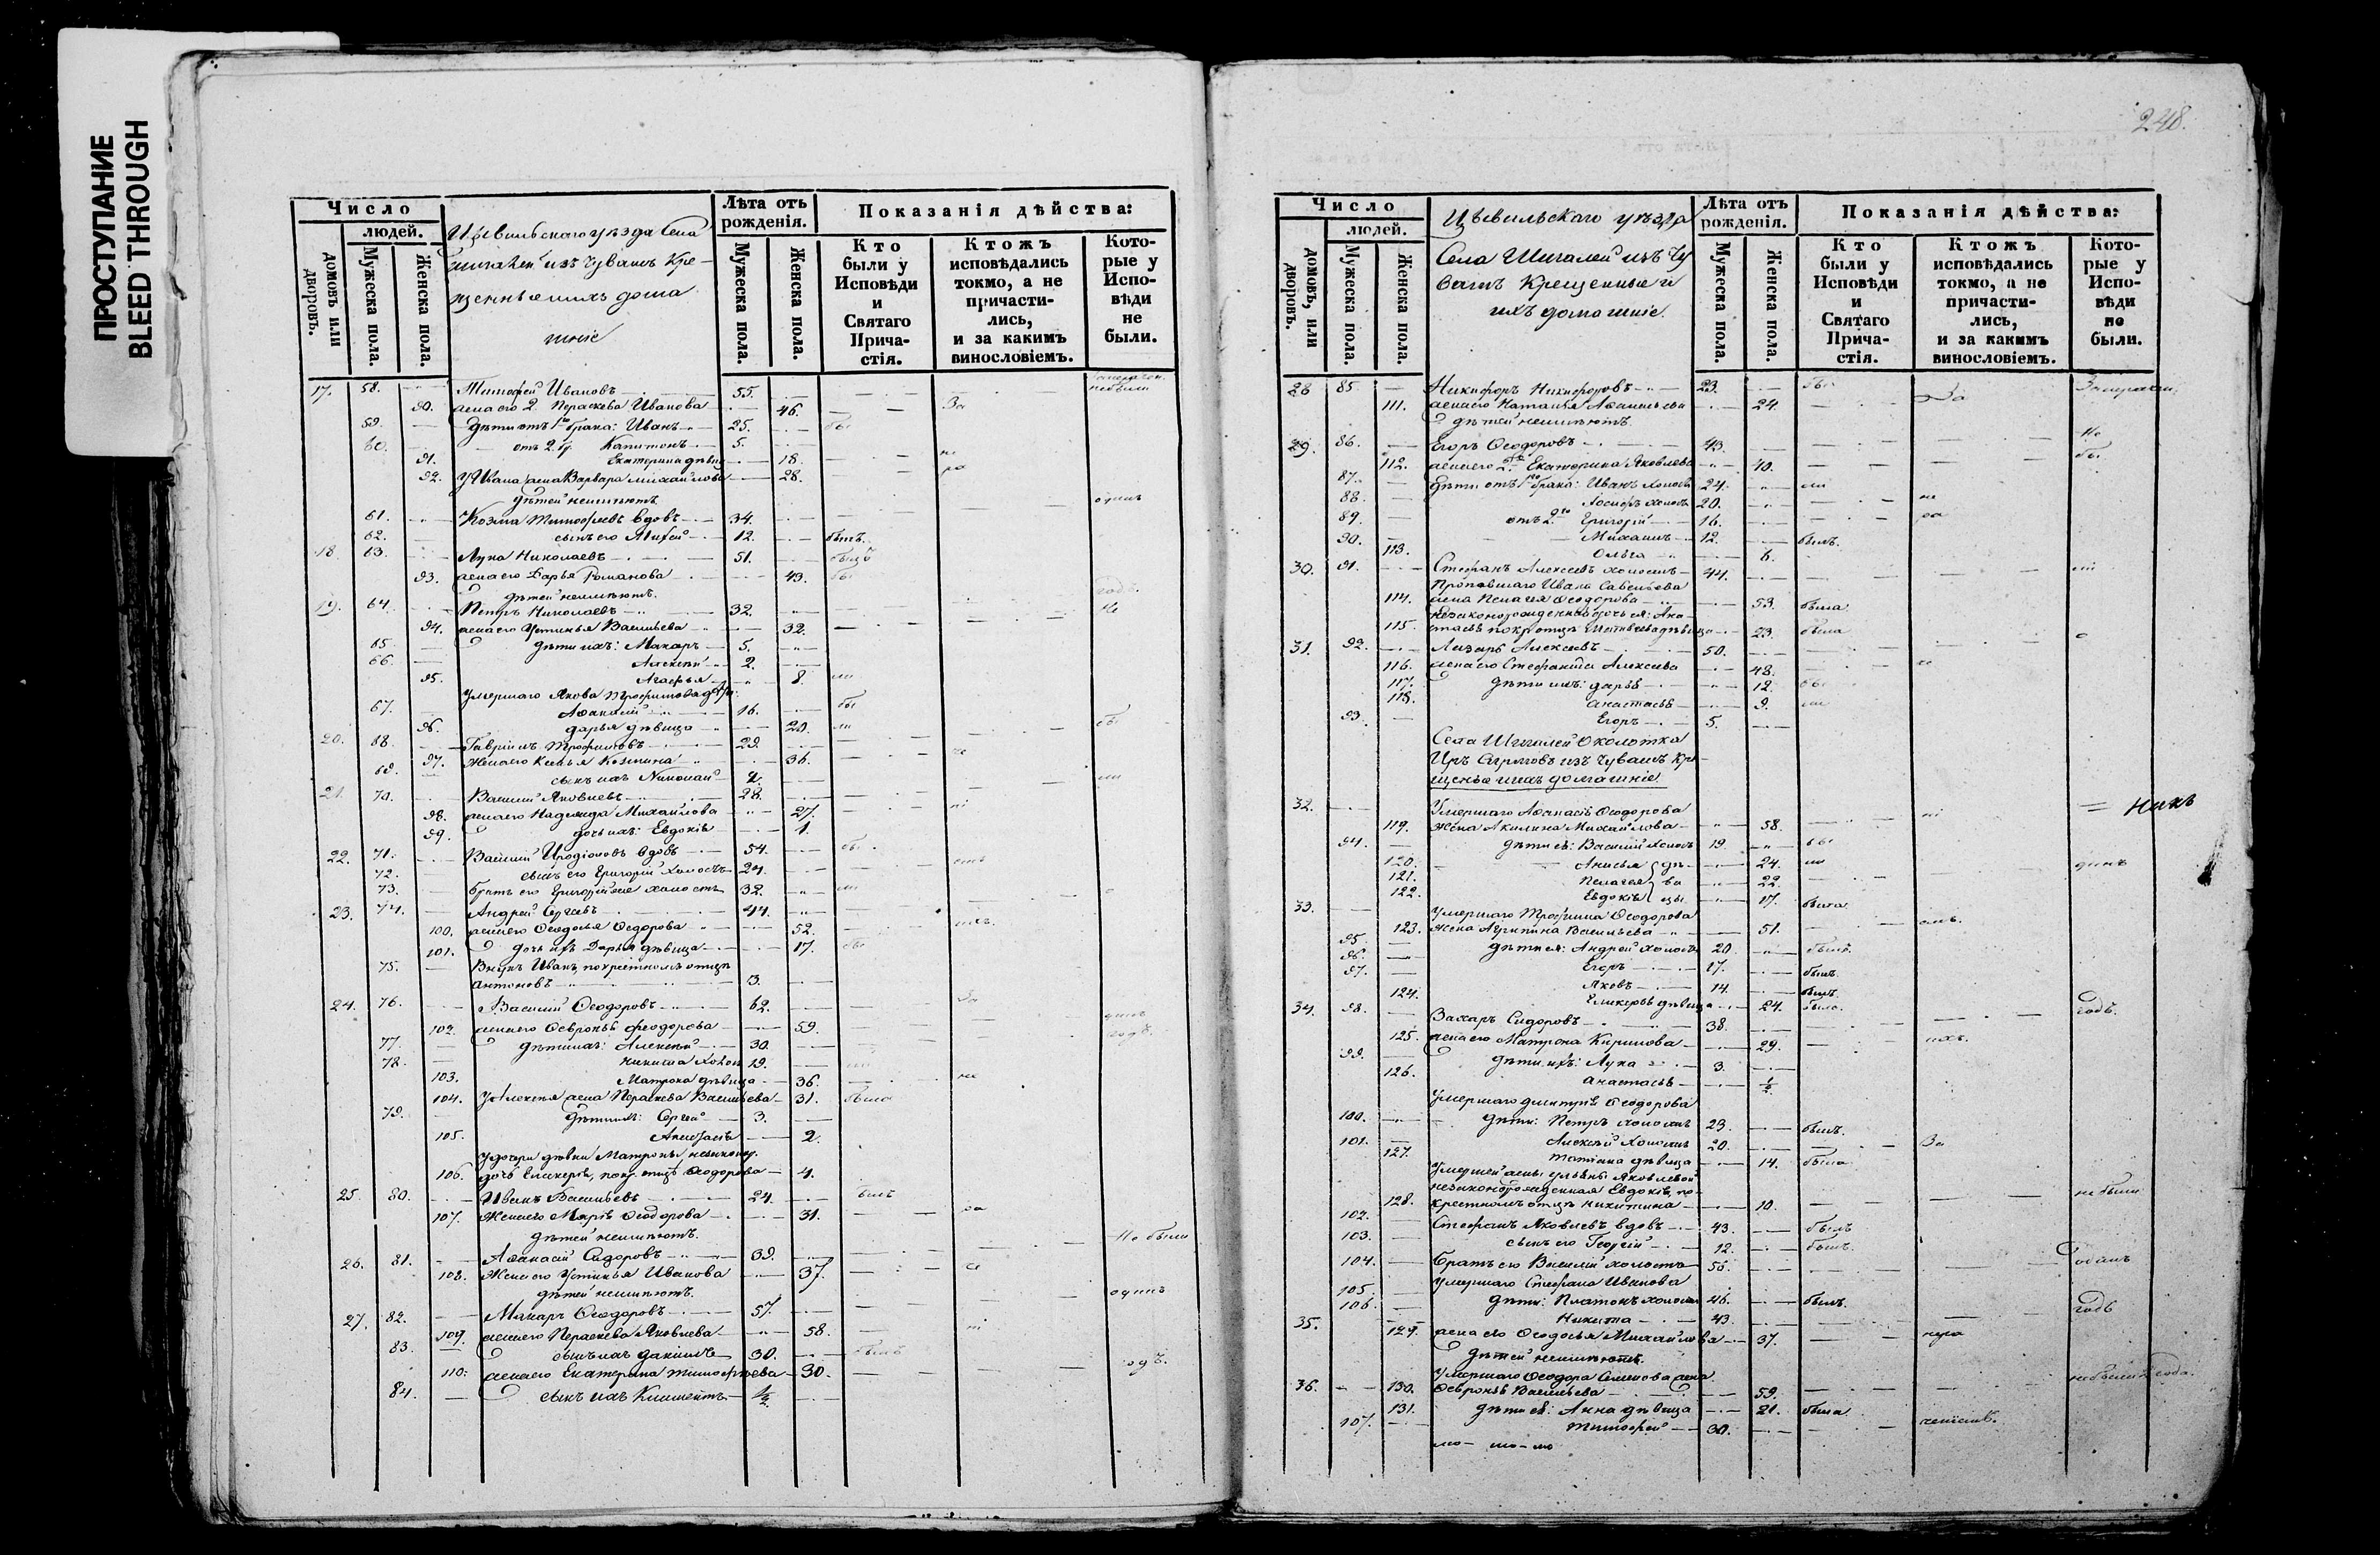 ПРОСТУПАНИЕ
BLEED THROUGH
Число
людей.
домовъ или дворовъ.
Мужеска пола.
Женска пола.
Цывильскаго уѣзда Села
Шигалей изъ Чувашъ Кре-
щенные и ихъ дома
шніе
Лѣта отъ рожденія.
Мужеска пола.
Женска пола.
Показанія дѣйства:
Кто были у Исповѣди и Святаго Прича-стія.
Ктожъ исповѣдались токмо, а не причасти-лись, и за какимъ винословіемъ.
Кото-рые у Испо-вѣди не были.
17. 58. Тимофей Ивановъ 55. небыли
90. жена его 2. Пераскева Иванова 46. За
59. дѣти отъ 1го брака: Иванъ 25. бы
60. отъ 2. бр. Капитонъ 5.
91. Екатерина дѣвиц 18. не
92. У Ивана жена Варвара Михайлова 28. ра
дѣтей неимѣютъ одинъ
61. Козма Тимофеевъ вдовъ 34.
62. сынъ его Михей 12. былъ.
18. 63. Лука Николаевъ 51.
93. жена его Дарья Романова 43. бы
дѣтей неимѣютъ. годъ.
19. 64. Петръ Николаевъ 32. Не
94. жена его Устинья Васильева 32.
65. дѣти ихъ: Макаръ 5.
66. Алексѣй 2.
95. Агафья 8. ли
Умершаго Якова Трофимова дѣти:
67. Афанасій 16. бы
96. дарья дѣвица 20. ли бы
20. 68. Гавріилъ Трофимовъ 29.
97. Жена его Ксенья Козмина 36. не
69. сынъ ихъ Николай 2. ли
21. 70. Василій Яковлевъ 28.
98. жена его Надежда Михайлова 27.
99. дочь ихъ: Евдокія 1.
22. 71. Василій Иродіоновъ вдовъ 54. бы
72. сынъ его Григорій холостъ 24.
73. братъ его Григорій же холостъ 32. ли
23. 74. Андрей Сергеевъ 44.
100. жена его Ѳеодосья Ѳедорова 52.
101. дочь ихъ Дарья дѣвица 17. бы
75. Внукъ Иванъ, по крестномъ отцѣ
Антоновъ 3.
24. 76. Василій Ѳеодоровъ 62. За
102. жена его Ѳевронья Феодорова 59. одинъ
77. дѣти ихъ: Алексѣй 30. годъ.
78. Никита холос 19.
103. Матрона дѣвица 36. не
104. У Алексѣя жена Пераскева Васильева 31. была
79. дѣти ихъ: Сергей 3.
105. 2.
У дочери дѣвки Матроны незаконор.
106. дочь Гликерія, по кр. отцѣ Ѳеодорова 4.
25. 80. Иванъ Васильевъ 24. былъ
107. Жена его Марія Ѳеодорова 31. ра
дѣтей неимѣютъ. Не были
26. 81. Афанасій Сидоровъ 39.
108. Жена его Устинья Иванова 37.
дѣтей неимѣютъ. одинъ
27. 82. Макаръ Ѳеодоровъ 57.
109. жена его Пераскева Яковлева 58.
83. сынъ ихъ Даніилъ 30. былъ
110. жена его Екатерина Тимофеева 30. годъ.
84. сынъ ихъ Климентъ 1/2.
248.
Число
людей.
домовъ, или дворовъ.
Мужеска пола.
Женска пола.
Цывильскаго уѣзда
Села Шигалей изъ Чу
вашъ Крещенные и
ихъ домашніе.
Лѣта отъ рожденія.
Мужеска пола.
Женска пола.
Показанія дѣйства:
Кто были у Исповѣди и Святаго Прича-стія.
Ктожъ исповѣдались токмо, а не причасти-лись, и за какимъ винословіемъ.
Кото-рые у Испо-вѣди не были.
28 85. Никифоръ Никифоровъ 23. бы
111. жена его Наталья Афанасьева 24.
дѣтей неимѣютъ.
29. 86. Егоръ Ѳеодоровъ 43. Не
112. жена его 2. Екатерина Яковлева 40. бы
87. дѣти отъ 1го брака: Иванъ холос 24. ли
88. Іосифъ холос 20. не
89. отъ 2го Григорій 16. ра
90. Михаилъ 12. былъ.
113. Ольга 6.
30. 91. Стефанъ Алексеевъ холостъ 44. ли
Пропавшаго Ивана Савельева
114. жена Пелагея Ѳеодорова 53. была
незаконорожденная дочь ея: Ана-
115. стасья по кр. отцѣ Матвѣева дѣвица 23. была
31. 92. Лазарь Алексеевъ 50.
116. жена его Стефанида Алексеева 48. не
117. дѣти ихъ: дарья 12. бы
118. Анастасья 9. ли
93. Егоръ 5.
Села Шигалей Околотка
изъ Чувашъ Кре-
щеные и ихъ домашніе.
32. Умершаго Афанасія Ѳеодорова
119. Жена Акилина Михайлова 58.
94. дѣти ея: Василій холост 19. бы
120. Анисья 24. ли
121. Пелагея 22.
122. Евдокія 17. была
дѣвицы
33. Умершаго Трофима Ѳеодорова
123. Жена Агрипина Васильева 51.
95. дѣти ея: Андрей холостъ 20. былъ.
96. Егоръ 17. былъ.
97. Яковъ 14. былъ.
124. Гликерья дѣвица 24. была.
34. 98. Захаръ Сидоровъ 38. годъ.
125. жена его Матрона Кирилова 29.
99. дѣти ихъ: Лука 3.
126. Анастасья 1/2.
Умершаго Дмитрія Ѳеодорова
100. дѣти: Петръ холостъ 23. былъ.
101. Алексѣй холостъ 20. За
127. Татіана дѣвица 14. была
Умершей жены Ульяны Яковлевой
незаконорожденная Евдокія, по
128. крестномъ отцѣ Никитина 10. не были
102. Стефанъ Яковлевъ вдовъ 43. былъ
103. сынъ его Георгій 12. былъ.
104. Братъ его Василій холостъ 56. одинъ
Умершаго Стефана Иванова
105. дѣти: Платонъ холостъ 46. былъ.
106. Никита 43. годъ
35. 129. жена его Ѳеодосья Михайлова 37. нера
дѣтей неимѣютъ.
Умершаго Ѳеодора Семенова жена
36. 130. Ѳевронья Васильева 59. небыли 2 года.
131. дѣти ея: Анна дѣвица 21. была
107. Тимофей 30.